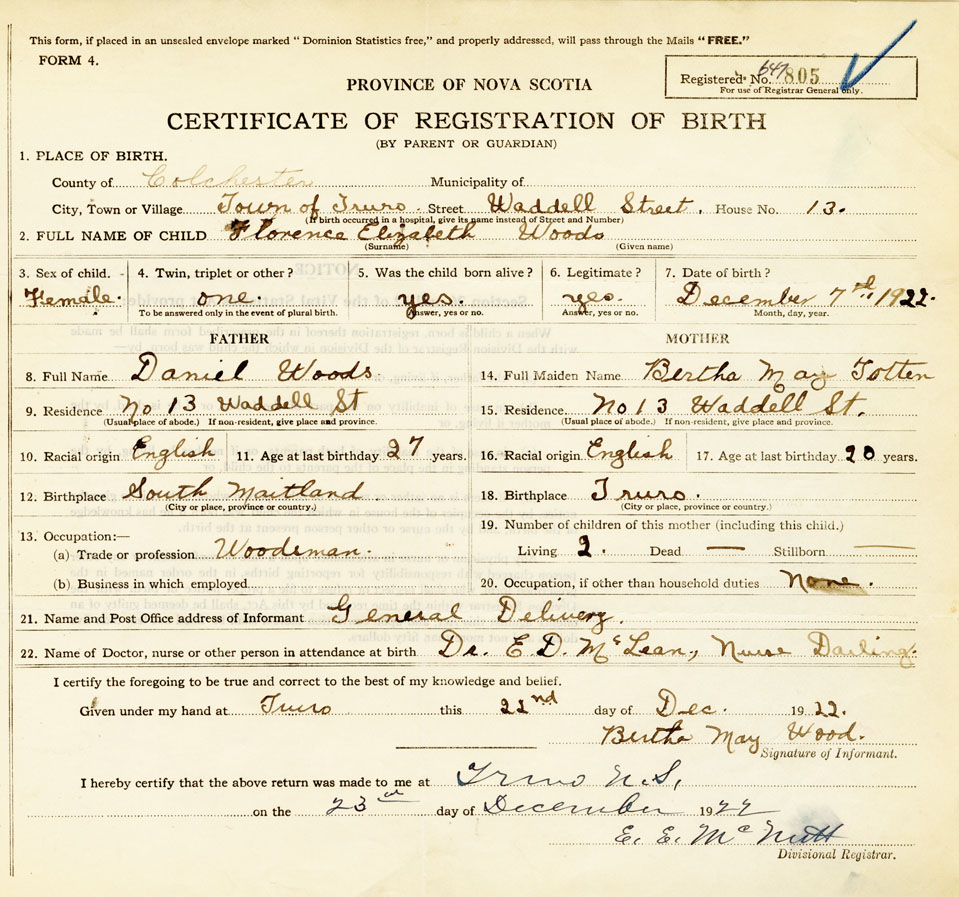 This form, if placed in an unsealed envelope marked "Dominion Statistics free," and properly addressed, will pass through the Mails "FREE."
FORM 4.
Registered No. 647 805
For use of Registrar General only.
PROVINCE OF NOVA SCOTIA
CERTIFICATE OF REGISTRATION OF BIRTH
(BY PARENT OR GUARDIAN)
1. PLACE OF BIRTH.
County of Colchester Municipality of
City, Town or Village Town of Truro Street Waddell Street. House No. 13.
(If birth occurred in a hospital, give its name instead of Street and Number)
2. FULL NAME OF CHILD Florence Elizabeth Woods
(Surname) (Given name)
3. Sex of child. 4. Twin, triplet or other? 5. Was the child born alive? 6. Legitimate? 7. Date of birth?
Female. one. yes. yes. December 7th, 1922.
To be answered only in the event of plural birth. Answer, yes or no. Answer, yes or no. Month, day, year.
FATHER MOTHER
8. Full Name Daniel Woods. 14. Full Maiden Name Bertha May Totten
9. Residence No 13 Waddell St 15. Residence. No 13 Waddell St.
(Usual place of abode.) If non-resident, give place and province. (Usual place of abode.) If non-resident, give place and province.
10. Racial origin English 11. Age at last birthday 27 years. 16. Racial origin English 17. Age at last birthday 20 years.
12. Birthplace South Maitland. 18. Birthplace Truro.
(City or place, province or country.) (City or place, province or country.)
13. Occupation:— 19. Number of children of this mother (including this child.)
(a) Trade or profession Woodsman. Living 2. Dead — Stillborn —
(b) Business in which employed 20. Occupation, if other than household duties None.
21. Name and Post Office address of Informant General Delivery.
22. Name of Doctor, nurse or other person in attendance at birth Dr. E. D. McLean, Nurse Darling.
I certify the foregoing to be true and correct to the best of my knowledge and belief.
Given under my hand at Truro this 22nd day of Dec. 1922.
Bertha May Wood.
Signature of Informant.
I hereby certify that the above return was made to me at Truro N.S.
on the 23rd day of December 1922
E. E. McNutt
Divisional Registrar.